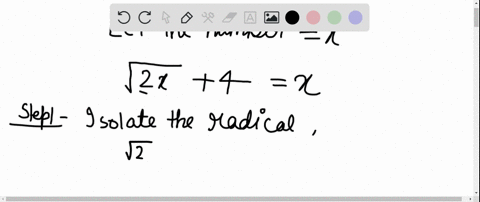 Let the number = x
√2x + 4 = x
Step1- Isolate the radical,
√2